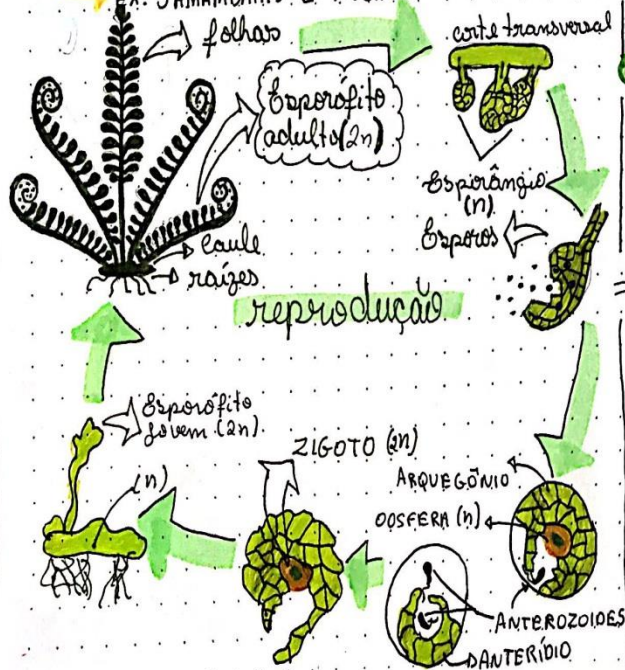 EX: SAMAMBAIAS E
folhas
corte transversal
Esporófito
adulto (2n)
Esporângio
(n)
Esporos
Caule
raízes
reprodução
Esporófito
Jovem (2n)
ZIGOTO (2n)
(n)
ARQUEGÔNIO
OOSFERA (n)
ANTEROZOIDES
ANTERÍDIO